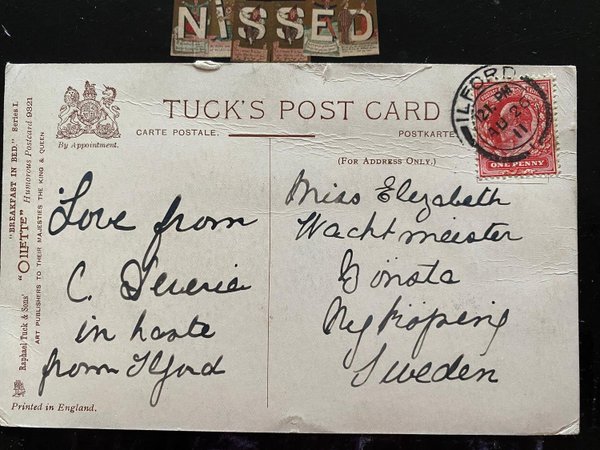 NiSSED
TUCK'S POST CARD
CARTE POSTALE.
POSTKARTE
By Appointment.
(FOR ADDRESS ONLY.)
"BREAKFAST IN BED." Series I.
Raphael Tuck & Sons' "OILETTE" Humorous Postcard 9321
ART PUBLISHERS TO THEIR MAJESTIES THE KING & QUEEN.
Printed in England.
ILFORD
11
ONE PENNY
Love from
C.
in haste
from Ilford
Miss Elizabeth
Wachtmeister
Nyköping
Sweden